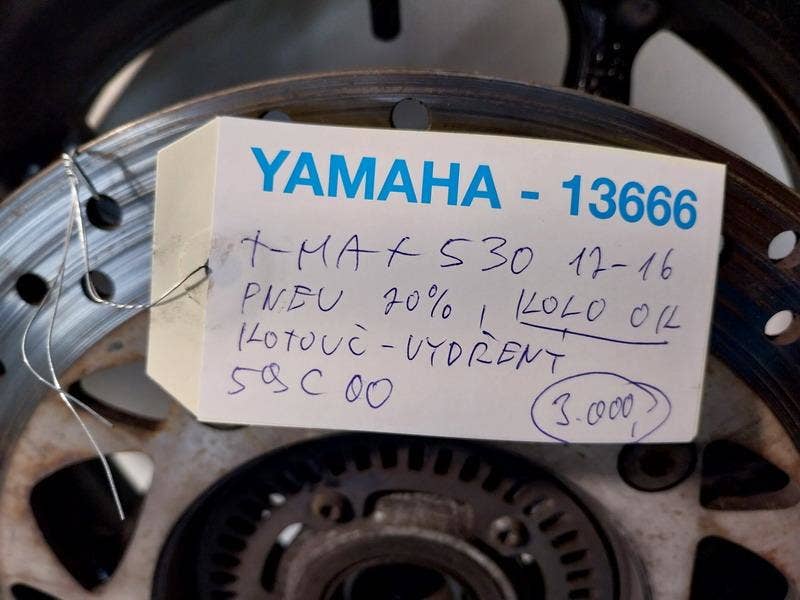 YAMAHA - 13666
T-MAX 530 12-16
PNEU 70%, KOLO OK
KOTOUČ - VYDŘENÝ
59C 00
3.000,-